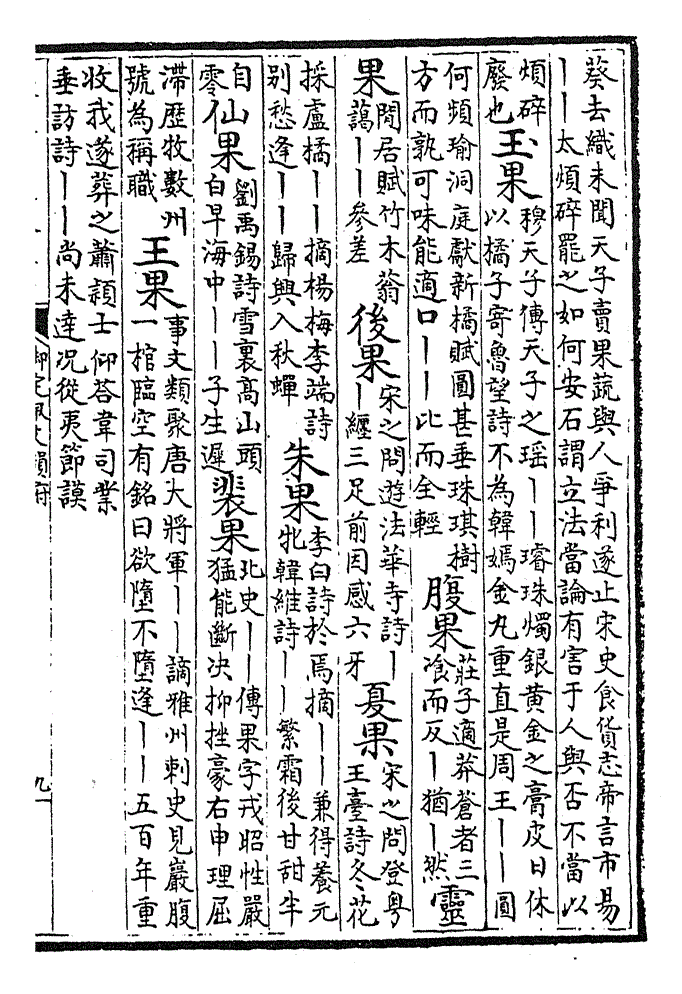 葵去織未聞天子賣果蔬與人爭利遂止宋史食貨志帝言市易
——太煩碎罷之如何安石謂立法當論有害于人與否不當以
煩碎
廢也
玉果
穆天子傳天子之瑶——璿珠燭銀黄金之膏皮日休
以橘子寄魯望詩不為韓嫣金丸重直是周王——圓
何頻瑜洞庭獻新橘賦圓甚垂珠琪樹
方而孰可味能適口——比而全輕
腹果
莊子適莽蒼者三
飡而反—猶—然
靈
果
閒居賦竹木蓊
藹——參差
後果
宋之問遊法華寺詩—
—纏三足前因感六牙
夏果
宋之問登粤
王臺詩冬花
採盧橘——摘楊梅李端詩
别愁逢——歸興入秋蟬
朱果
李白詩於焉摘——兼得養元
牝韓維詩——繁霜後甘甜半
自
零
仙果
劉禹錫詩雪裏髙山頭
白早海中——子生遲
裴果
北史——傳果字戎昭性嚴
猛能斷决抑挫豪右申理屈
滯歴牧數州
號為稱職
王果
事文類聚唐大將軍——謫雅州刺史見巖腹
一棺臨空有銘曰欲墮不墮逢——五百年重
收我遂葬之蕭穎士仰答韋司業
垂訪詩——尚未逹况從夷節謨
御定佩文韻府
九一